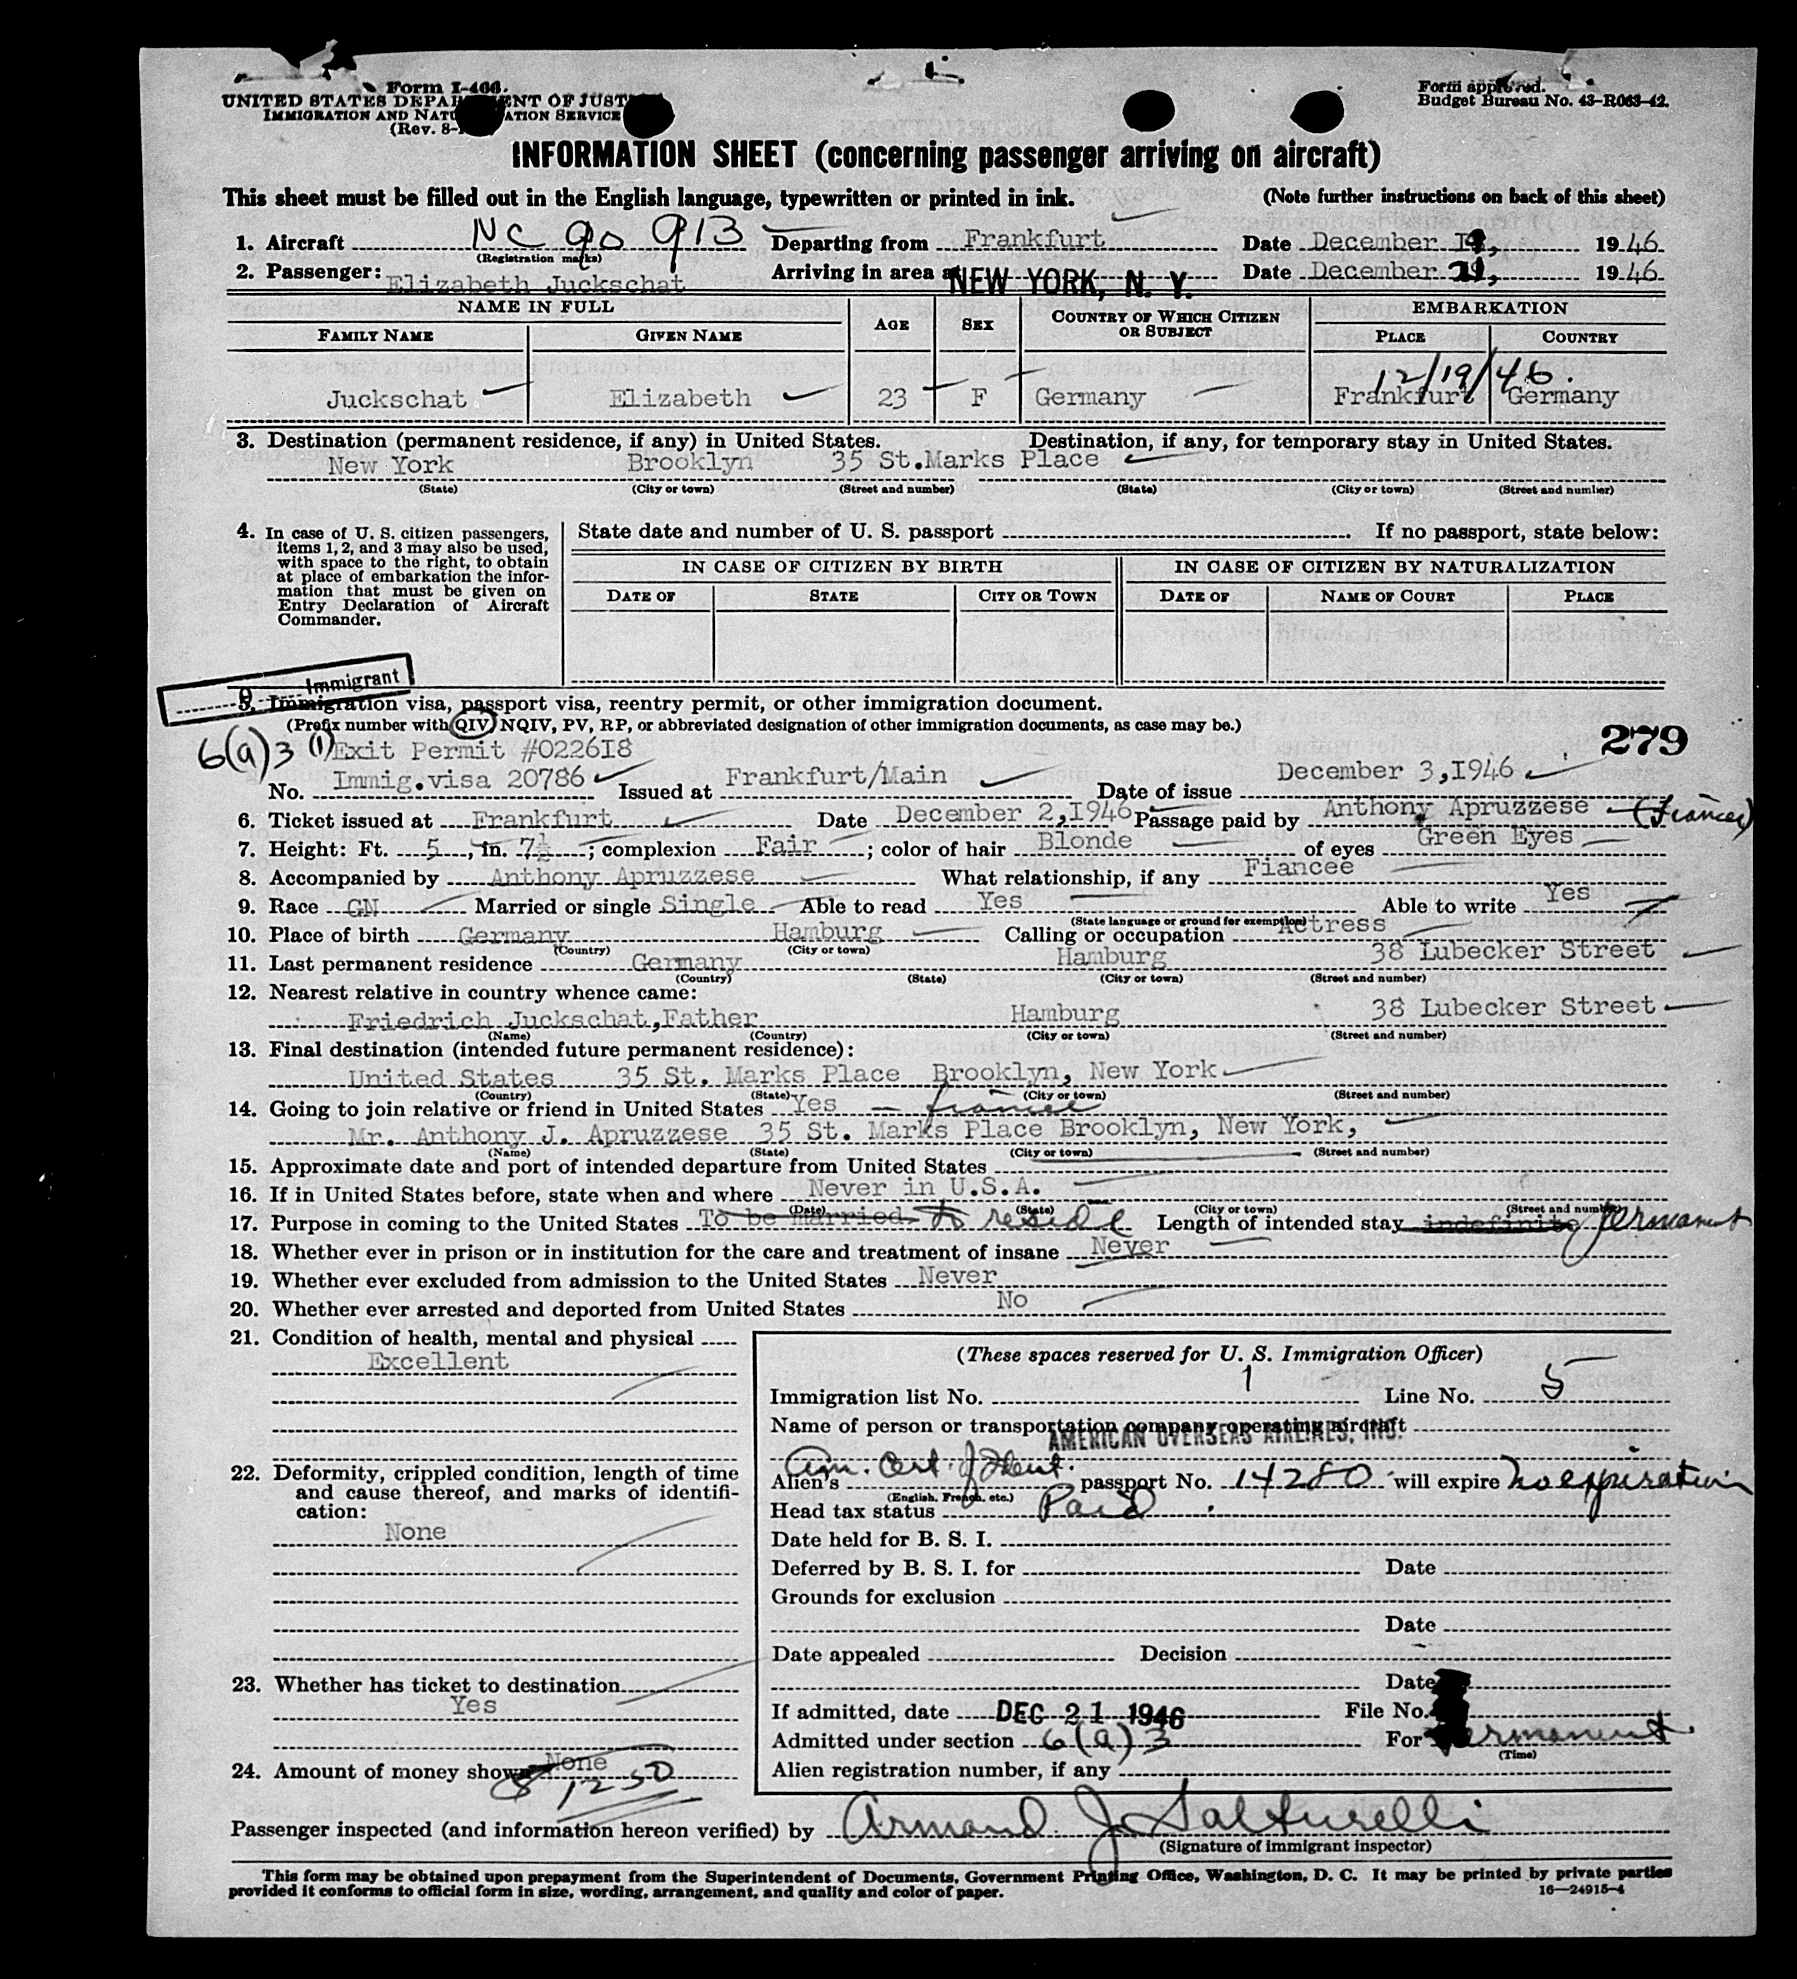 Form I-466.
UNITED STATES DEPARTMENT OF JUSTICE
IMMIGRATION AND NATURALIZATION SERVICE
(Rev. 8-
Form approved.
Budget Bureau No. 43-R063-42.
INFORMATION SHEET (concerning passenger arriving on aircraft)
This sheet must be filled out in the English language, typewritten or printed in ink. (Note further instructions on back of this sheet)
1. Aircraft NC 90 913 Departing from Frankfurt Date December 1946
(Registration marks)
2. Passenger: Elizabeth Juckschat Arriving in area at NEW YORK, N. Y. Date December 21, 1946
NAME IN FULL AGE SEX COUNTRY OF WHICH CITIZEN OR SUBJECT EMBARKATION
FAMILY NAME GIVEN NAME PLACE COUNTRY
12/19/46.
Juckschat Elizabeth 23 F Germany Frankfurt Germany
3. Destination (permanent residence, if any) in United States. Destination, if any, for temporary stay in United States.
New York Brooklyn 35 St.Marks Place
(State) (City or town) (Street and number) (State) (City or town) (Street and number)
4. In case of U. S. citizen passengers,
items 1, 2, and 3 may also be used,
with space to the right, to obtain
at place of embarkation the infor-
mation that must be given on
Entry Declaration of Aircraft
Commander.
State date and number of U. S. passport If no passport, state below:
IN CASE OF CITIZEN BY BIRTH IN CASE OF CITIZEN BY NATURALIZATION
DATE OF STATE CITY OR TOWN DATE OF NAME OF COURT PLACE
Immigrant
5. Immigration visa, passport visa, reentry permit, or other immigration document.
(Prefix number with QIV, NQIV, PV, RP, or abbreviated designation of other immigration documents, as case may be.)
279
6(a)3 (1) Exit Permit #022618
No. Immig.visa 20786 Issued at Frankfurt/Main Date of issue December 3,1946
6. Ticket issued at Frankfurt Date December 2,1946 Passage paid by Anthony Apruzzese (Fiancee)
7. Height: Ft. 5, in. 7½; complexion Fair; color of hair Blonde of eyes Green Eyes
8. Accompanied by Anthony Apruzzese What relationship, if any Fiancee
9. Race GN Married or single Single Able to read Yes Able to write Yes
(State language or ground for exemption)
10. Place of birth Germany Hamburg Calling or occupation Actress
(Country) (City or town)
11. Last permanent residence Germany Hamburg 38 Lubecker Street
(Country) (State) (City or town) (Street and number)
12. Nearest relative in country whence came:
Friedrich Juckschat,Father Hamburg 38 Lubecker Street
(Name) (Country) (City or town) (Street and number)
13. Final destination (intended future permanent residence):
United States 35 St. Marks Place Brooklyn, New York
(Country) (State) (City or town) (Street and number)
14. Going to join relative or friend in United States Yes — fiancee
Mr. Anthony J. Apruzzese 35 St. Marks Place Brooklyn, New York,
(Name) (State) (City or town) (Street and number)
15. Approximate date and port of intended departure from United States
16. If in United States before, state when and where Never in U.S.A.
(Date) (State) (City or town) (Street and number)
17. Purpose in coming to the United States To be married to reside Length of intended stay indefinite permanent
18. Whether ever in prison or in institution for the care and treatment of insane Never
19. Whether ever excluded from admission to the United States Never
20. Whether ever arrested and deported from United States No
21. Condition of health, mental and physical
Excellent
22. Deformity, crippled condition, length of time
and cause thereof, and marks of identifi-
cation:
None
23. Whether has ticket to destination
Yes
24. Amount of money shown None
$ 1250
(These spaces reserved for U. S. Immigration Officer)
Immigration list No. 1 Line No. 5
Name of person or transportation company operating aircraft
AMERICAN OVERSEAS AIRLINES, INC.
Alien's Am. Cert. of Ident. passport No. 14280 will expire no expiration
(English, French, etc.)
Head tax status Paid
Date held for B. S. I.
Deferred by B. S. I. for Date
Grounds for exclusion
Date
Date appealed Decision
Date
If admitted, date DEC 21 1946 File No.
Admitted under section 6(a)3 For permanent
(Time)
Alien registration number, if any
Passenger inspected (and information hereon verified) by Armand J Salturelli
(Signature of immigrant inspector)
This form may be obtained upon prepayment from the Superintendent of Documents, Government Printing Office, Washington, D. C. It may be printed by private parties
provided it conforms to official form in size, wording, arrangement, and quality and color of paper.
16—24915-4